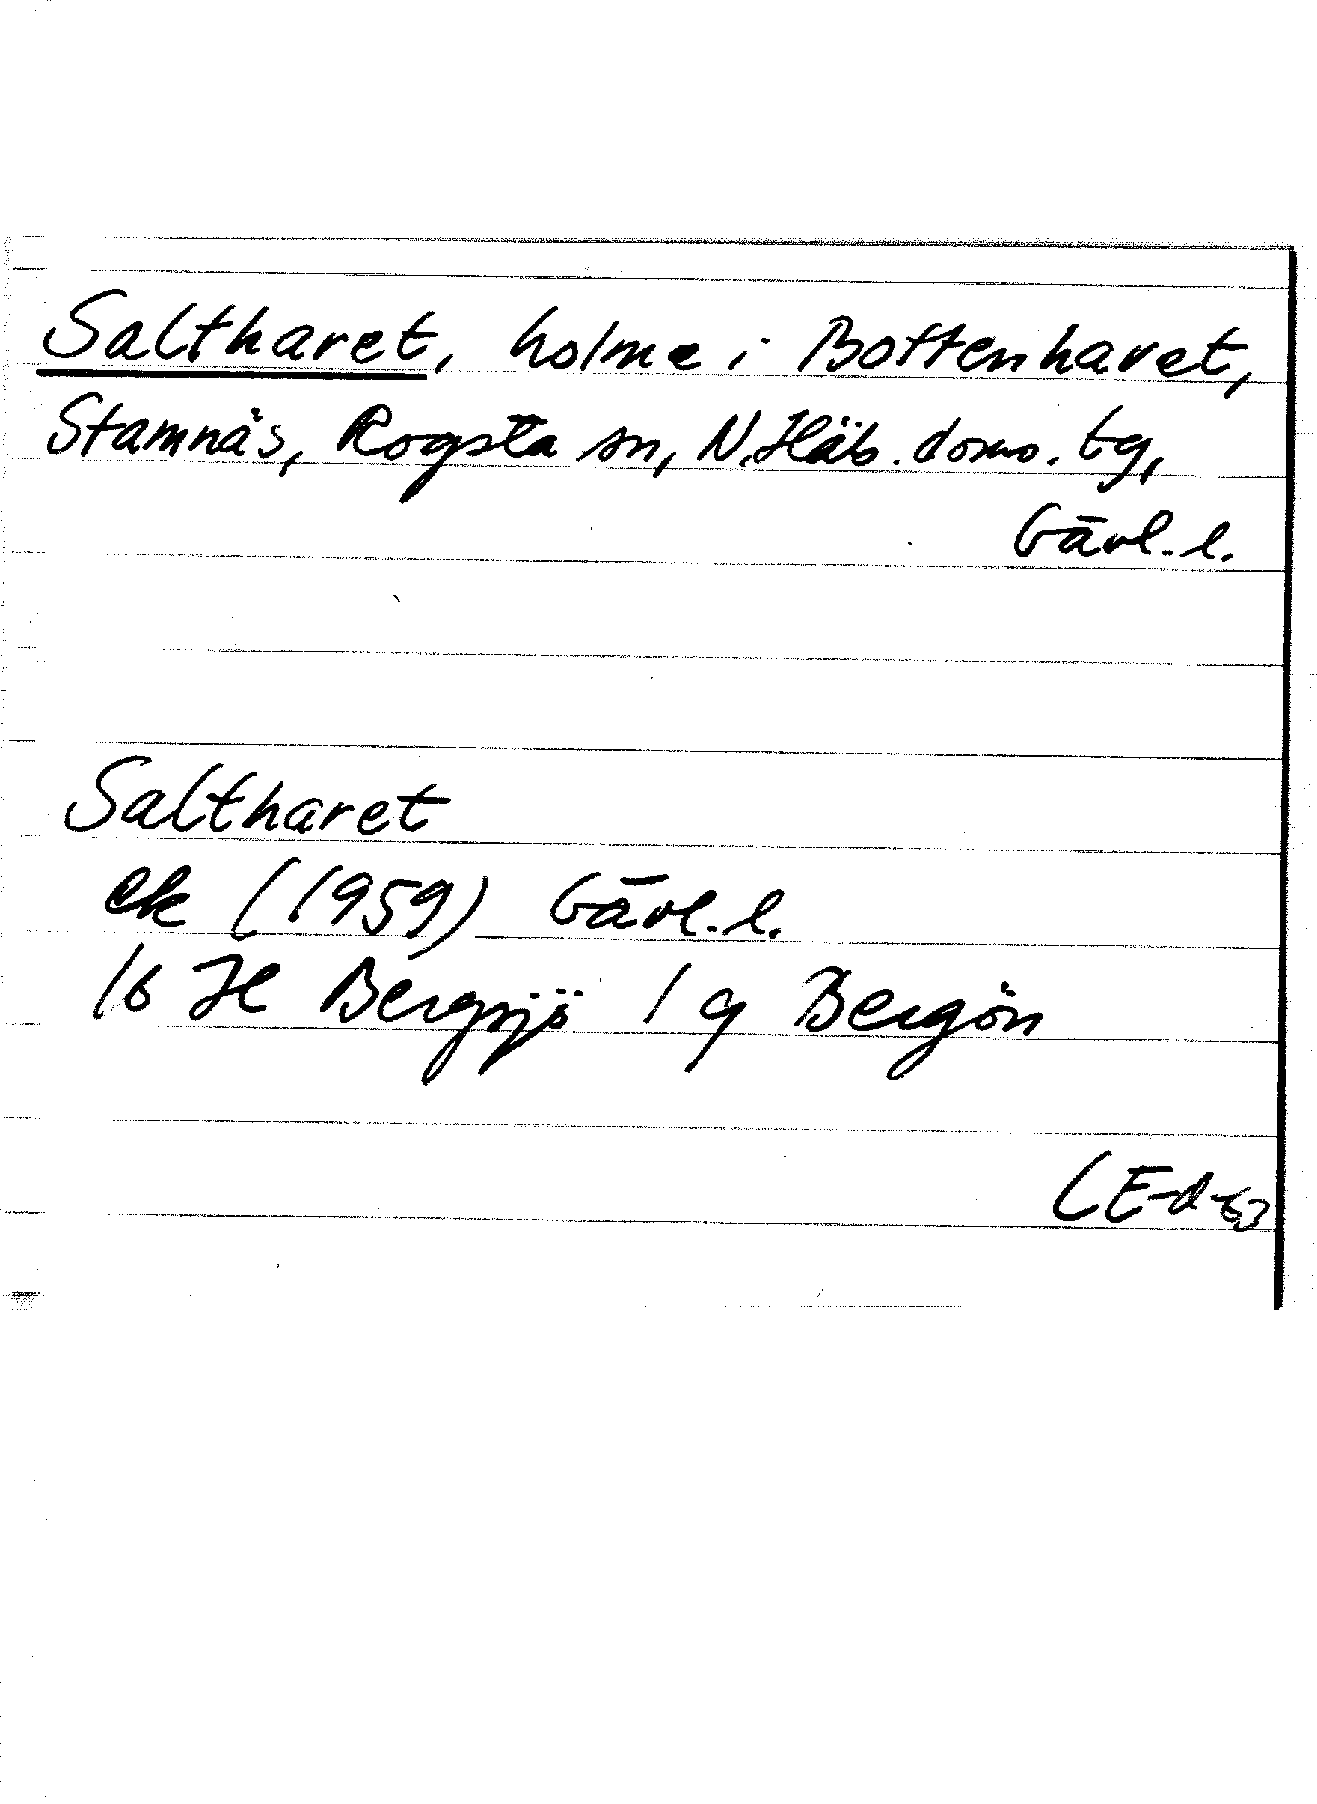 Saltharet, holme i Bottenhavet,
Stamnäs, Rogsta sn, N. Häls. doms. tg,
Gävl. l.
Saltharet
ek (1959) Gävl. l.
16 H Bergsjö 1 g Bergön
LE-d-63